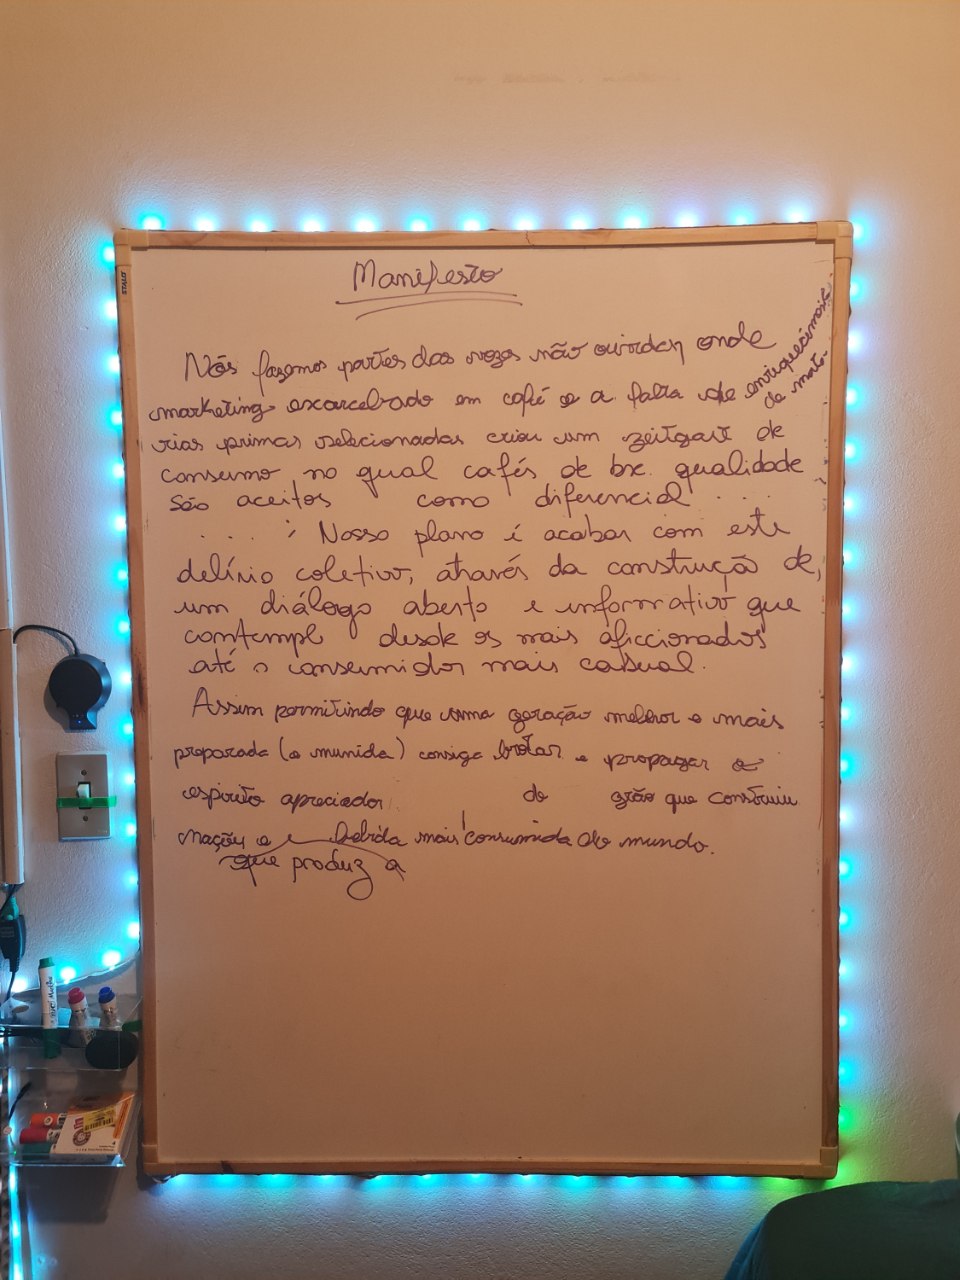 Manifesto
Nós fazemos partes das vozes não ouvidas, onde
marketing exarcebado em café e a falta de enriquecimento
de maté-
rias primas selecionadas criou um zeitgast de
consumo no qual cafés de bx. qualidade
são aceitos como diferencial
Nosso plano é acabar com este
delírio coletivo, através da construção de,
um diálogo aberto e informativo que
contempl desde os mais aficcionados
até o consumidor mais casual.
Assim permitindo que uma geração melhor e mais
preparada (e munida) consiga brotar e propagar o
espirito apreciador do grão que construiu
nações e bebida mais consumida do mundo.
que produz a
STALO